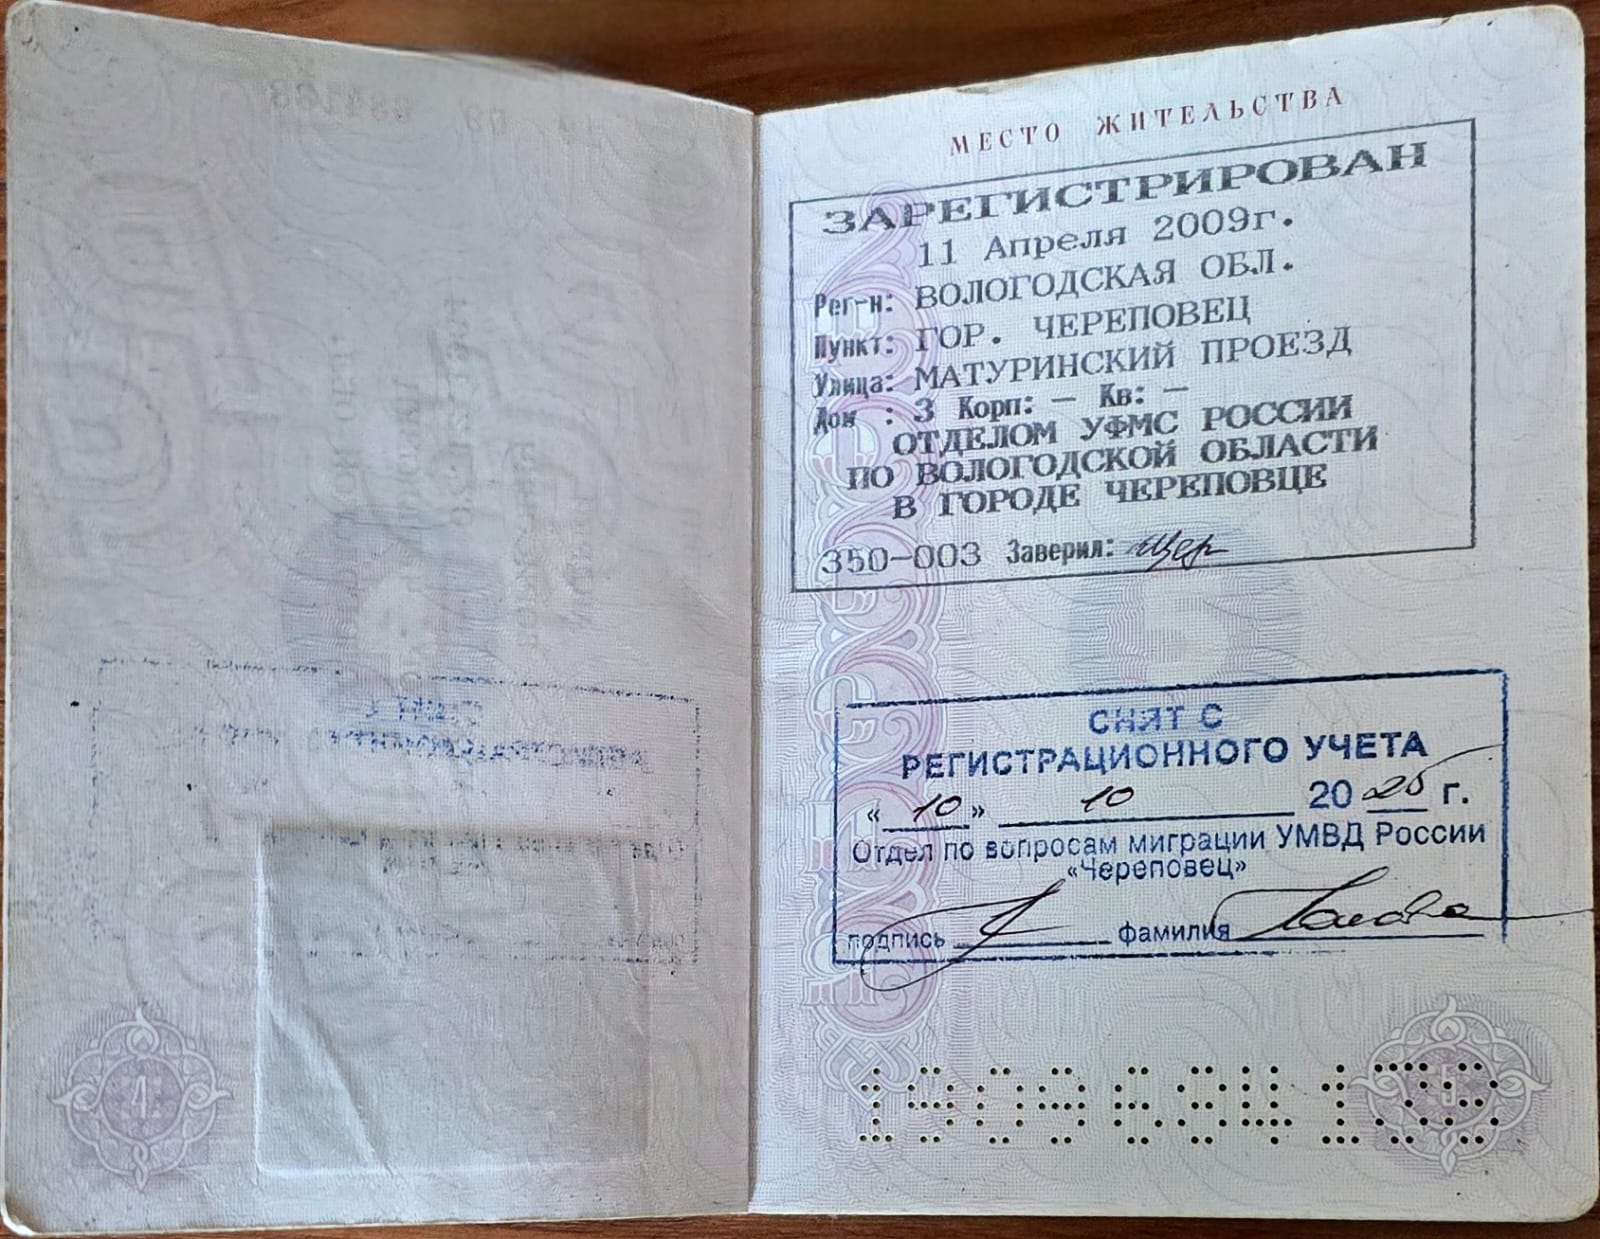 МЕСТО ЖИТЕЛЬСТВА
ЗАРЕГИСТРИРОВАН
11 Апреля 2009г.
Рег-н: ВОЛОГОДСКАЯ ОБЛ.
Пункт: ГОР. ЧЕРЕПОВЕЦ
Улица: МАТУРИНСКИЙ ПРОЕЗД
Дом : 3 Корп: – Кв: –
ОТДЕЛОМ УФМС РОССИИ
ПО ВОЛОГОДСКОЙ ОБЛАСТИ
В ГОРОДЕ ЧЕРЕПОВЦЕ
350-003 Заверил:
СНЯТ С
РЕГИСТРАЦИОННОГО УЧЕТА
« 10 » 10 20 25 г.
Отдел по вопросам миграции УМВД России
«Череповец»
подпись фамилия
4
5